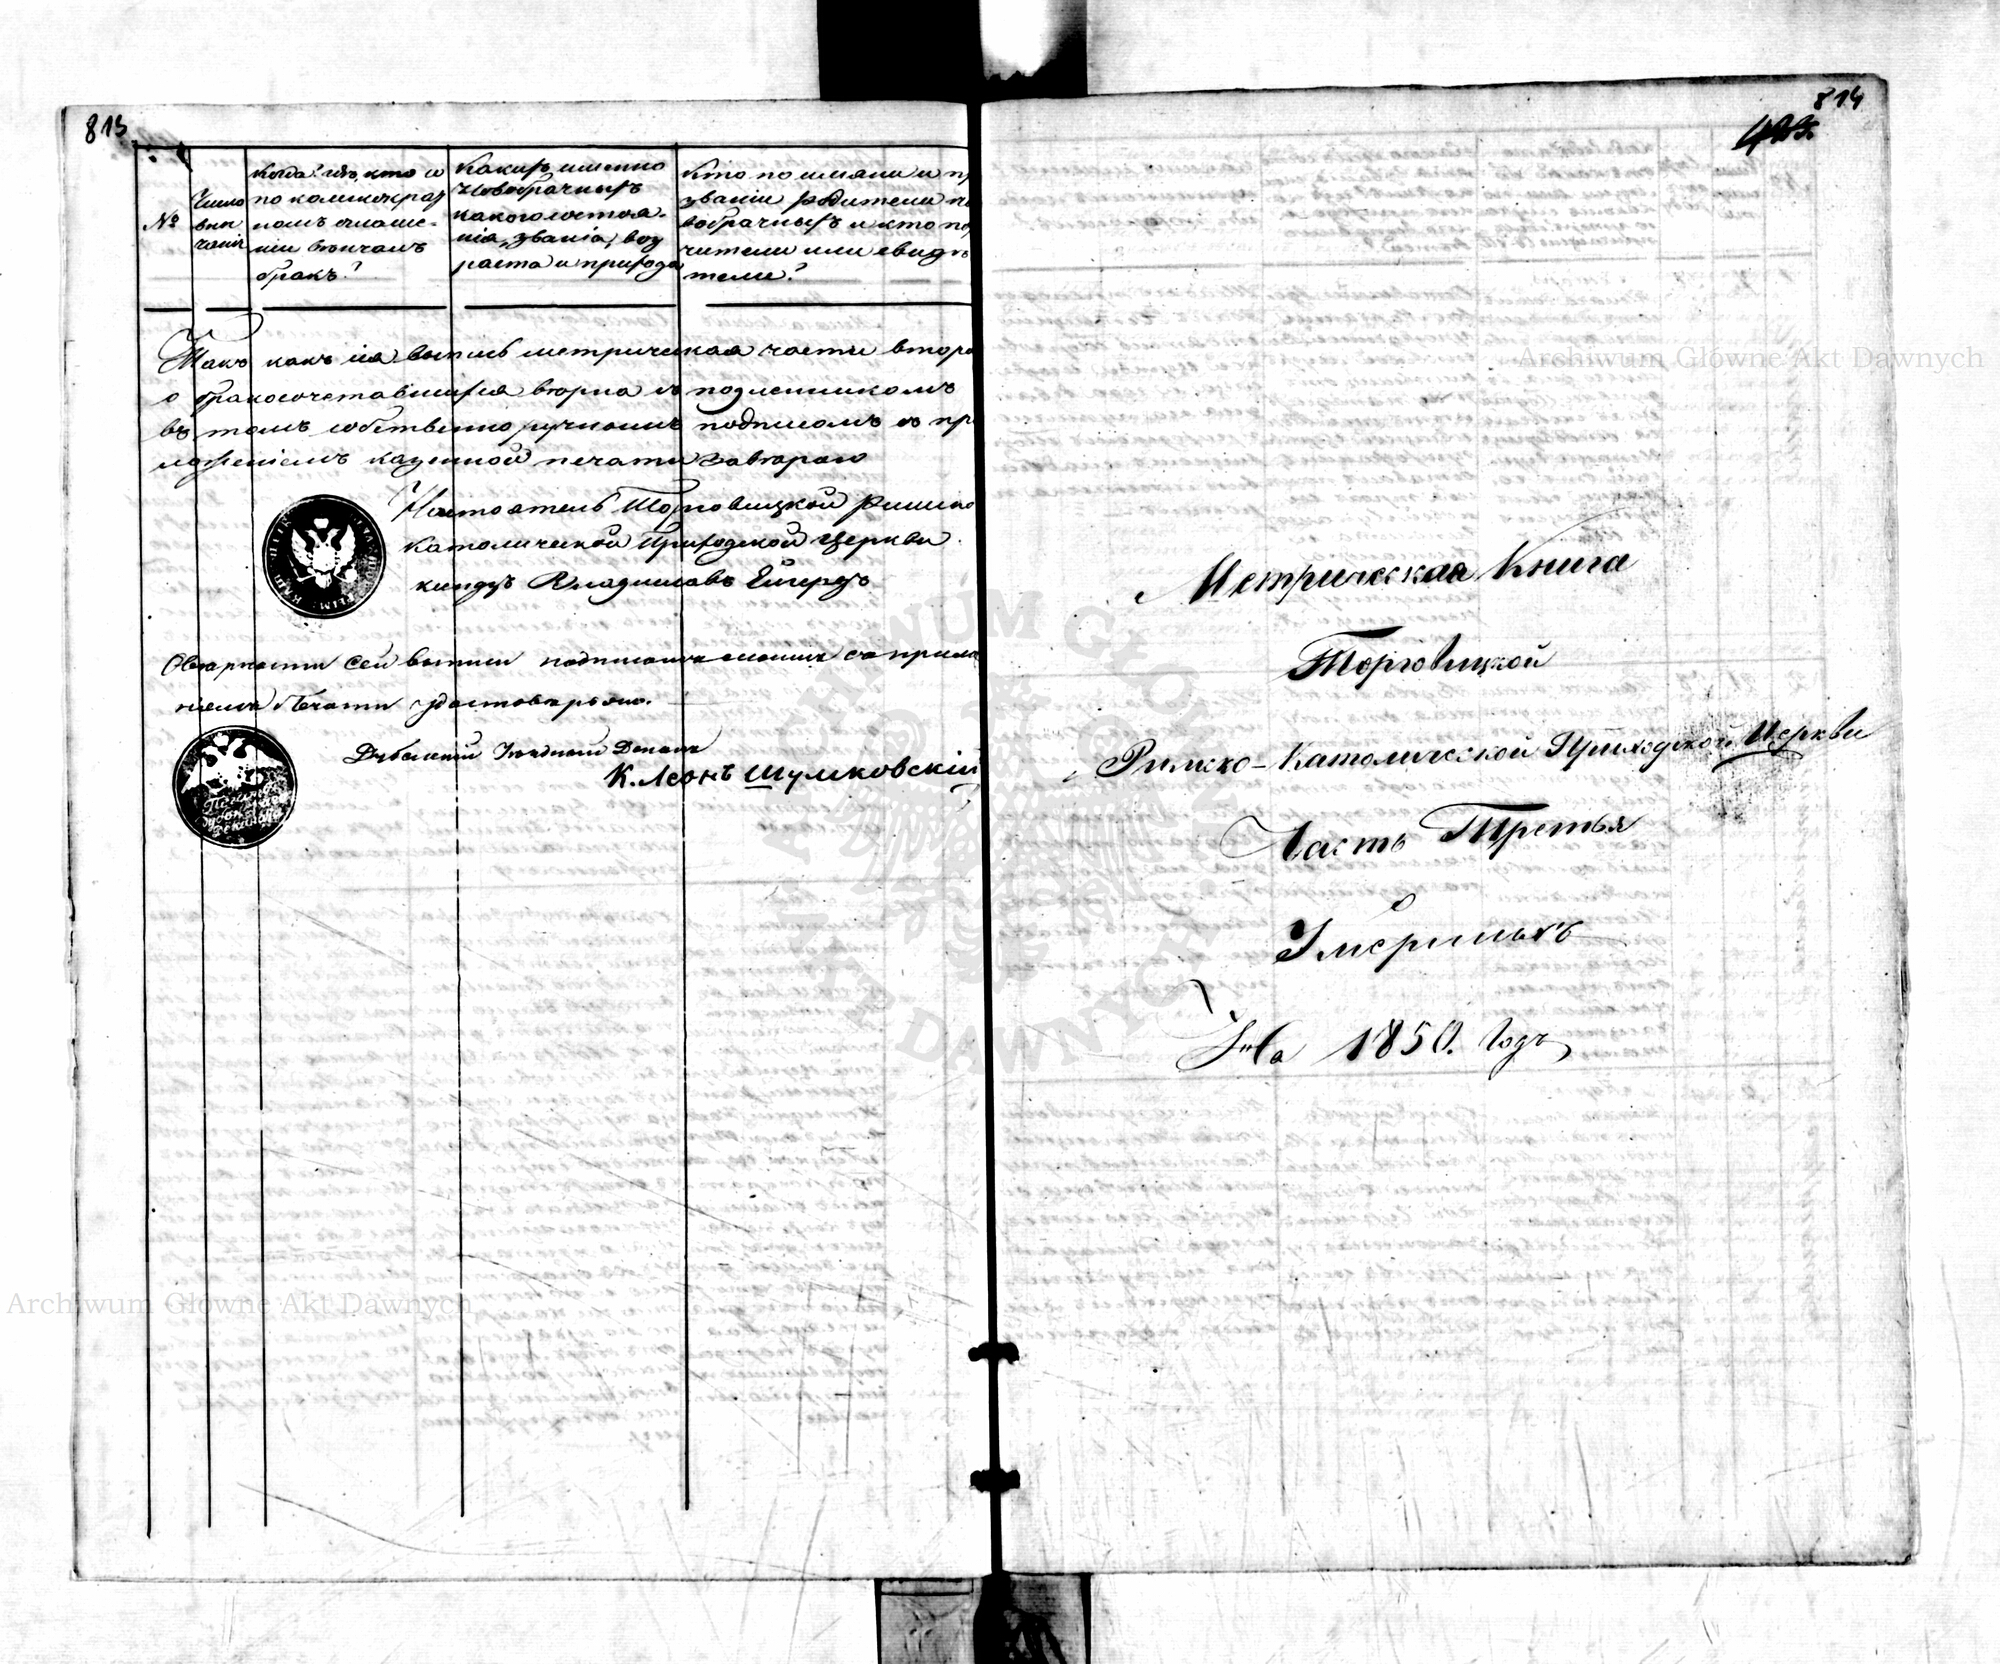 813
№
Число
вѣн
чанія
Когда? гдѣ, кто и
по коликократ
номъ оглаше-
ніи вѣнчалъ
бракъ?
Какихъ именно
Новобрачныхъ
какого состоя-
нія, званія, воз
раста и прихода
Кто по имяни и пр
званіи родители но
вобрачныхъ и кто по
чители или свидѣ
тели?
Такъ какъ сія выпись метрическая части второ
о бракосочетавшихся вѣрна съ подленникомъ
въ томъ собственно ручнымъ подписомъ съ при
ложеніемъ казенной печати завѣраю
Настоятель Торговицкой Римско
Католической Приходской Церкви
ксендзъ Владиславъ
сей выписи подписомъ моимъ съ прило
женіемъ Печати удостовѣряю.
Дубенскій Деканъ
К. Леонъ Шумковскій
Печать
Дубен
Декана
814
423.
Метрическая Книга
Торговицкой
Римско-Католической Приходской Церкви
Часть Третья
О
Умершихъ
На 1850. Годъ
Archiwum Główne Akt Dawnych
ARCHIWUM GŁÓWNE AKT DAWNYCH
Archiwum Główne Akt Dawnych